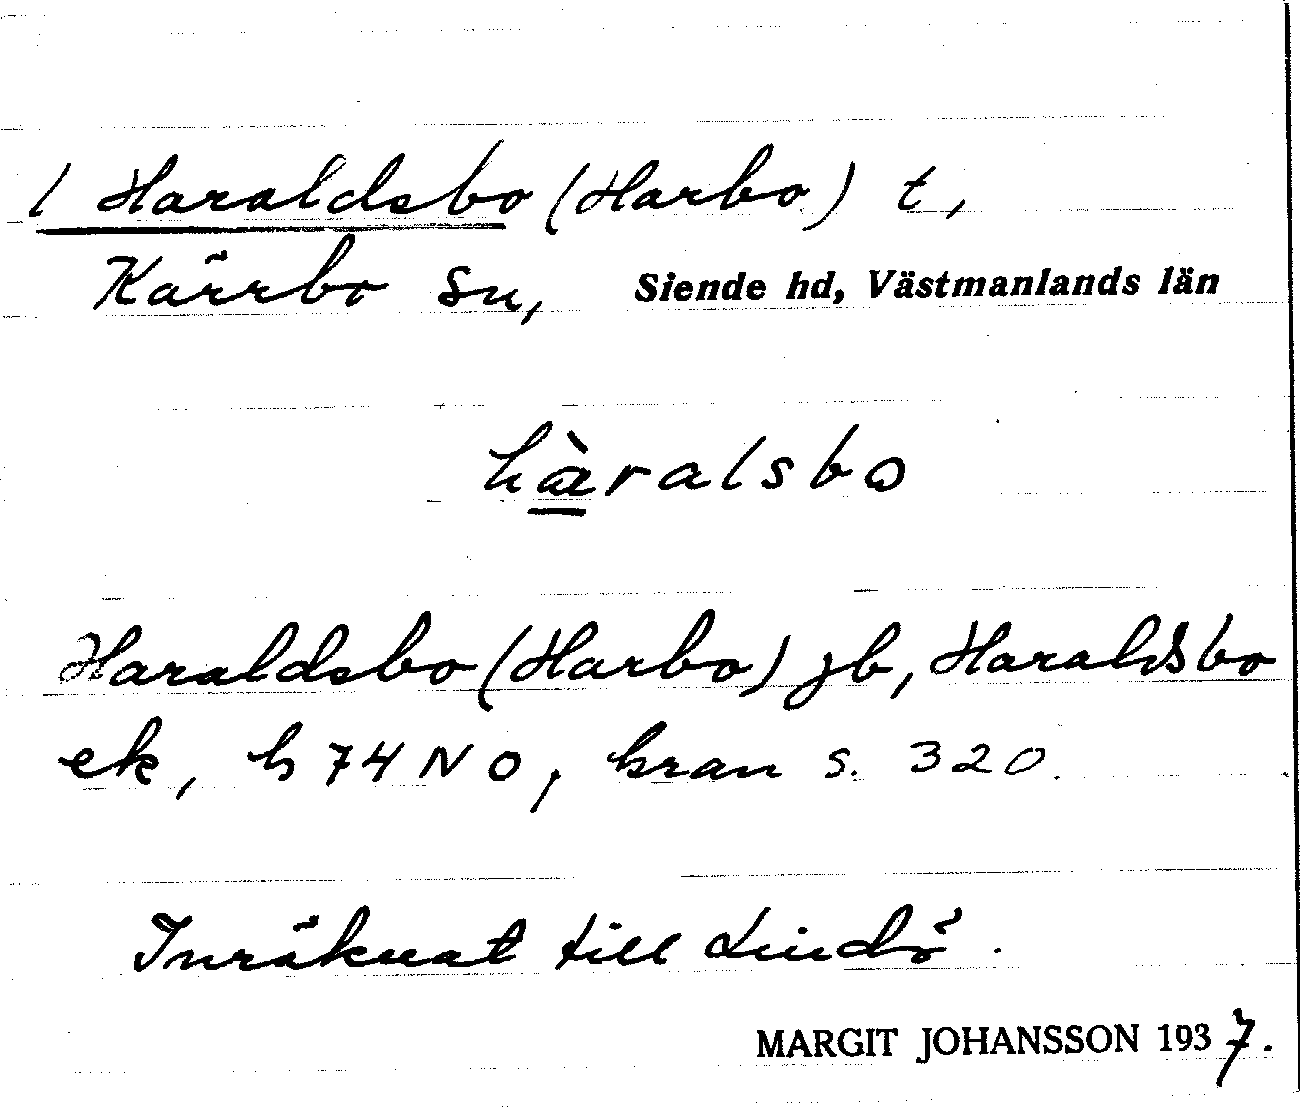 / Haraldsbo (Harbo) t,
Kärrbo sn, Siende hd, Västmanlands län
hæ̀ralsbo
Haraldsbo (Harbo) jb, Haraldsbo
ek, h 74 NO, kran s. 320.
Inräknat till Lindö.
MARGIT JOHANSSON 1937.